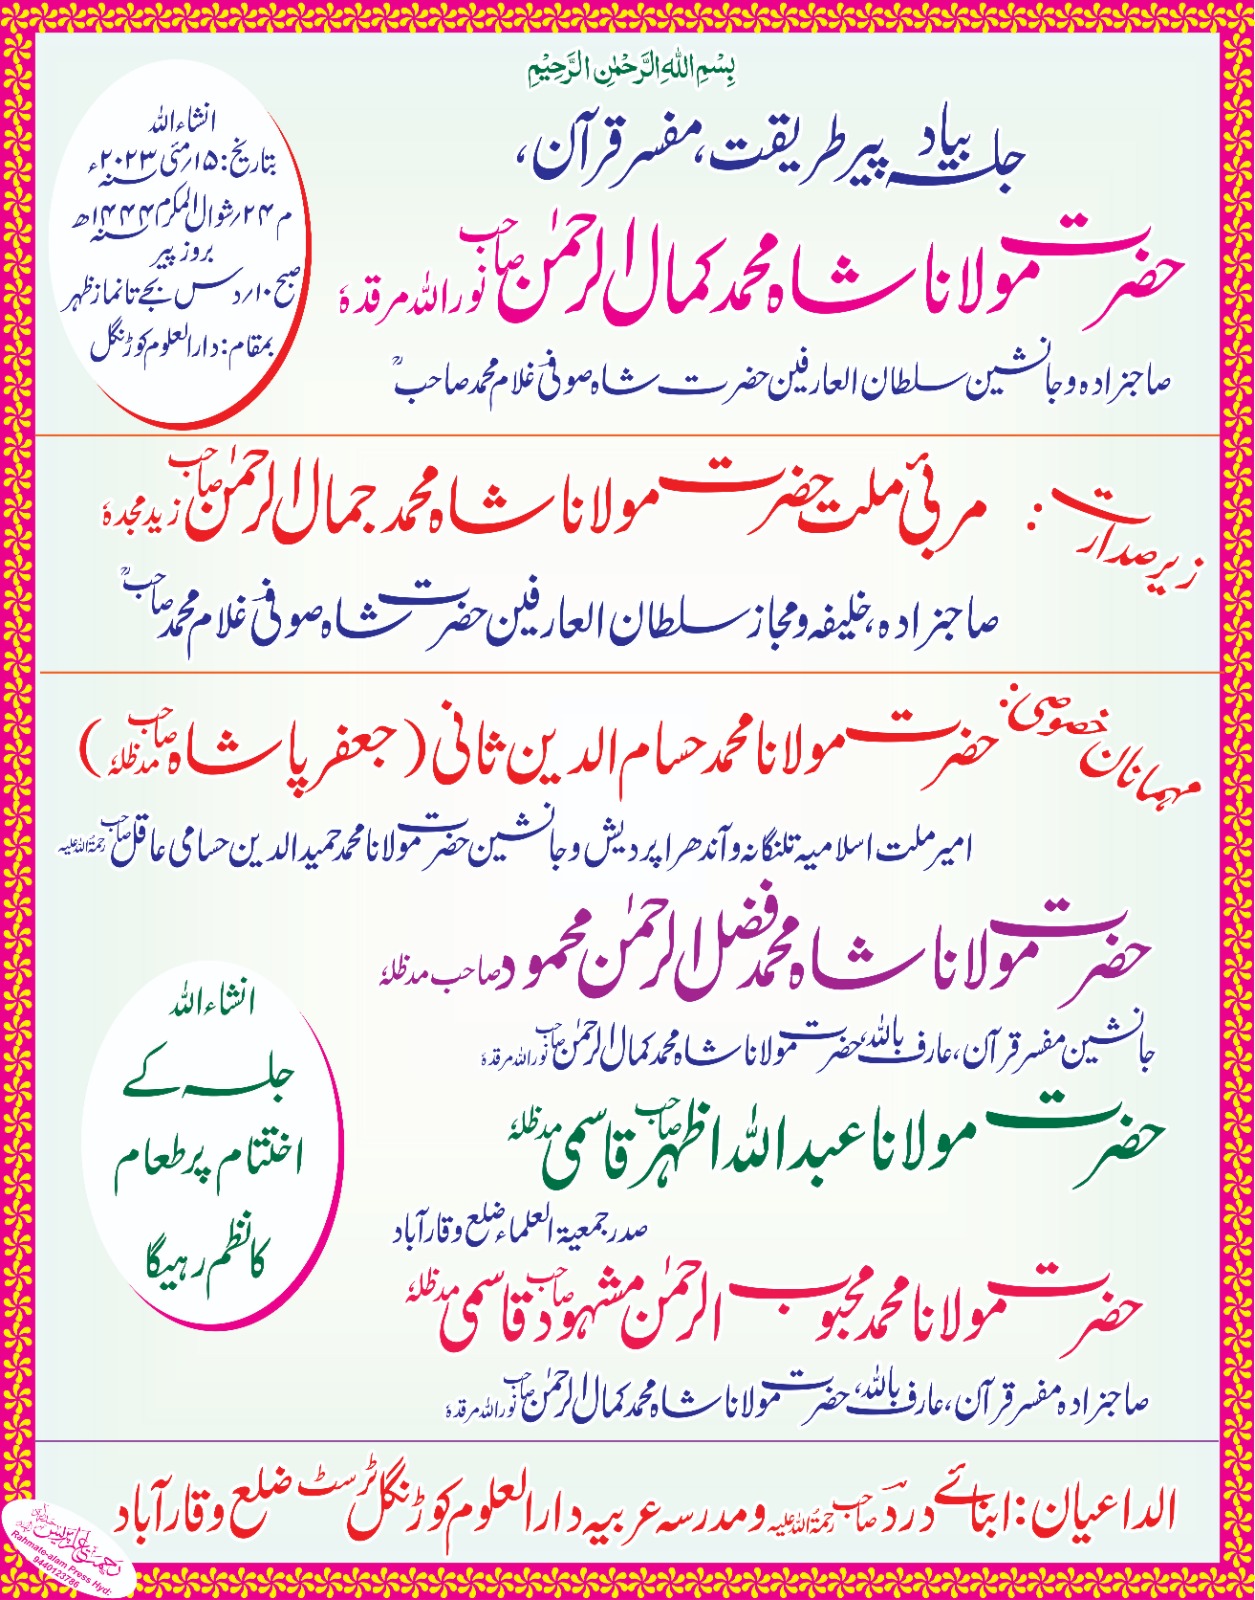 بِسْمِ اللهِ الرَّحْمٰنِ الرَّحِيْمِ
جلسہ بیاد پیر طریقت، مفسر قرآن،
حضرت مولانا شاہ محمد کمال الرحمٰن صاحب نور اللہ مرقدہٗ
صاحبزادہ و جانشین سلطان العارفین حضرت شاہ صوفی غلام محمد صاحبؒ
انشاء اللہ
بتاریخ: ۱۵؍مئی ۲۰۲۳ء
م ۲۴؍شوال المکرم ۱۴۴۴ھ
بروز پیر
صبح ۱۰؍دس بجے تا نماز ظہر
بمقام: دارالعلوم کوڑنگل
زیر صدارت: مربیٔ ملت حضرت مولانا شاہ محمد جمال الرحمٰن صاحب زید مجدہٗ
صاحبزادہ، خلیفہ و مجاز سلطان العارفین حضرت شاہ صوفی غلام محمد صاحبؒ
مہمانان خصوصی: حضرت مولانا محمد حسام الدین ثانی (جعفر پاشاہ صاحب مدظلہٗ)
امیر ملت اسلامیہ تلنگانہ و آندھرا پردیش و جانشین حضرت مولانا محمد حمید الدین حسامی عاقل صاحب رحمۃ اللہ علیہ
حضرت مولانا شاہ محمد فضل الرحمٰن محمود صاحب مدظلہٗ
جانشین مفسر قرآن، عارف باللہ، حضرت مولانا شاہ محمد کمال الرحمٰن صاحب نور اللہ مرقدہٗ
حضرت مولانا عبد اللہ اظہر صاحب قاسمی مدظلہٗ
صدر جمعیۃ العلماء ضلع وقارآباد
حضرت مولانا محمد محبوب الرحمٰن مشہود صاحب قاسمی مدظلہٗ
صاحبزادہ مفسر قرآن، عارف باللہ، حضرت مولانا شاہ محمد کمال الرحمٰن صاحب نور اللہ مرقدہٗ
انشاء اللہ
جلسہ کے
اختتام پر طعام
کا نظم رہیگا
الداعیان: ابنائے درد صاحب رحمۃ اللہ علیہ و مدرسہ عربیہ دارالعلوم کوڑنگل ٹرسٹ ضلع وقارآباد
Rahmate-alam Press Hyd:
9440123786